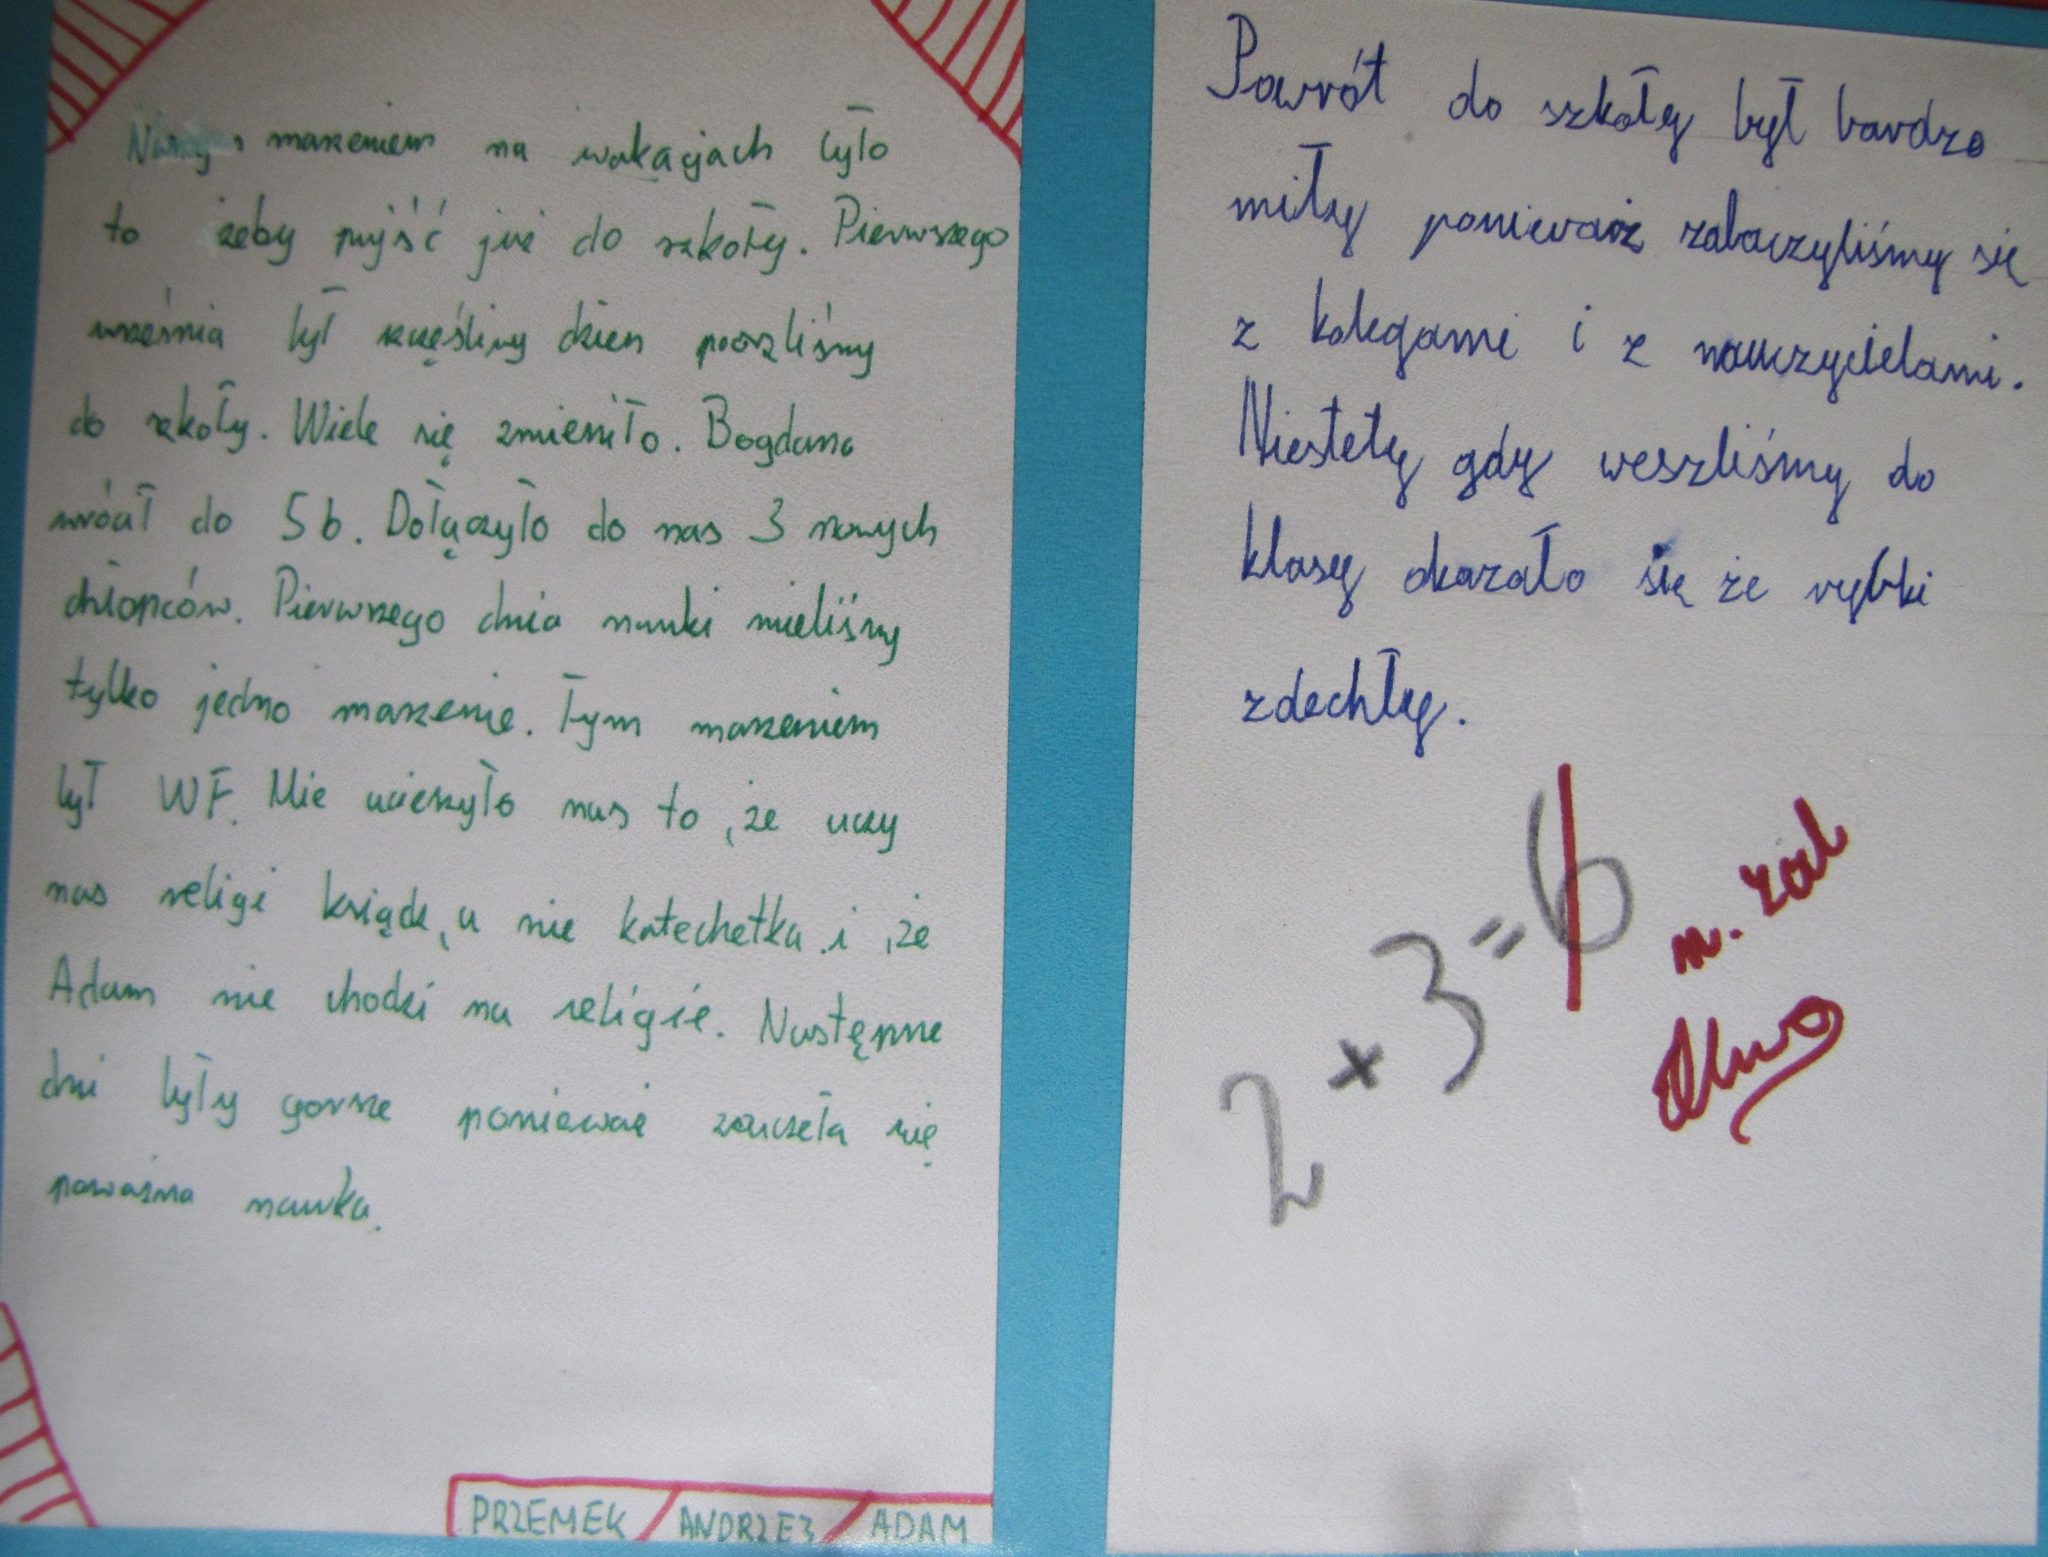 Naszym marzeniem na wakacjach było
to żeby pójść już do szkoły. Pierwszego
września był szczęśliwy dzien poszliśmy
do szkoły. Wiele się zmieniło. Bogdana
wrócił do 5b. Dołączyło do nas 3 nowych
chłopców. Pierwszego dnia nauki mieliśmy
tylko jedno marzenie. Tym marzeniem
był WF. Nie ucieszyło nas to, że uczy
nas religi ksiądz, a nie katechetka i, że
Adam nie chodzi na religie. Następne
dni były gorsze ponieważ zaczeła się
poważna nauka.
PRZEMEK / ANDRZEJ / ADAM
Powrót do szkoły był bardzo
miły ponieważ zobaczyliśmy się
z kolegami i z nauczycielami.
Niestety gdy weszliśmy do
klasy okazało się że rybki
zdechły.
2 x 3 = 6